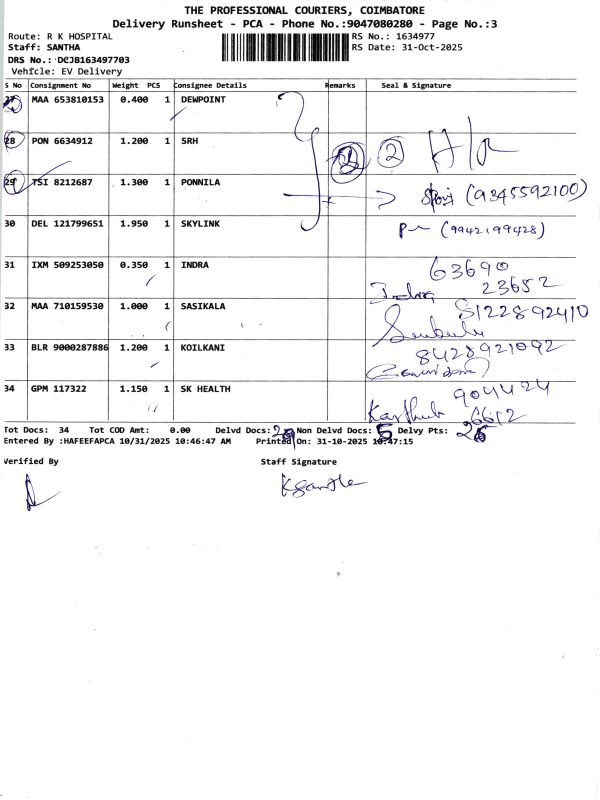 THE PROFESSIONAL COURIERS, COIMBATORE
Delivery Runsheet - PCA - Phone No.:9047080280 - Page No.:3
Route: R K HOSPITAL
RS No.: 1634977
Staff: SANTHA
RS Date: 31-Oct-2025
DRS No.: DCJB163497703
Vehicle: EV Delivery
S No Consignment No Weight PCS Consignee Details Remarks Seal & Signature
27 MAA 653810153 0.400 1 DEWPOINT
28 PON 6634912 1.200 1 SRH
2
29 TSI 8212687 1.300 1 PONNILA
(9345592100)
30 DEL 121799651 1.950 1 SKYLINK
(9942199428)
31 IXM 509253050 0.350 1 INDRA
63690
23652
Indra
32 MAA 710159530 1.000 1 SASIKALA
8122892410
33 BLR 9000287886 1.200 1 KOILKANI
8428921092
34 GPM 117322 1.150 1 SK HEALTH
904424
6612
Tot Docs: 34 Tot COD Amt: 0.00 Delvd Docs: Non Delvd Docs: 5 Delvy Pts:
Entered By :HAFEEFAPCA 10/31/2025 10:46:47 AM Printed On: 31-10-2025 10:47:15
Verified By
Staff Signature